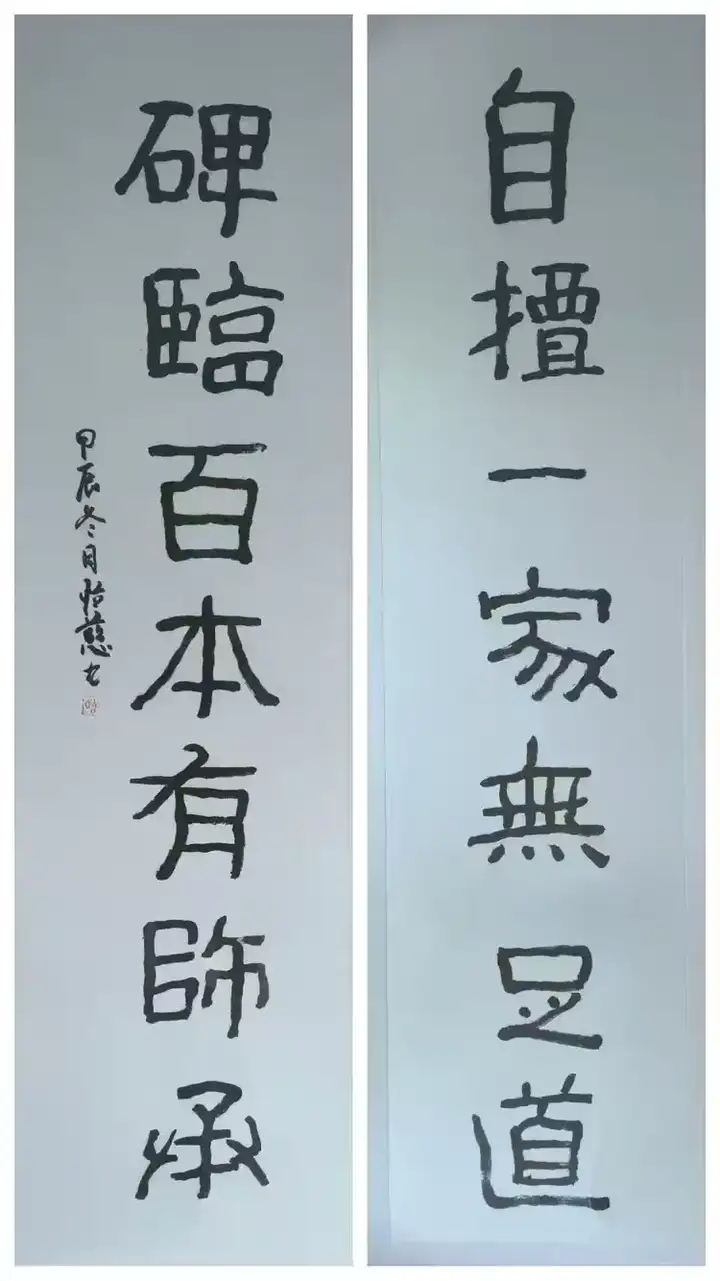 自擅一家無足道
碑臨百本有師承
甲辰冬月怡慈書